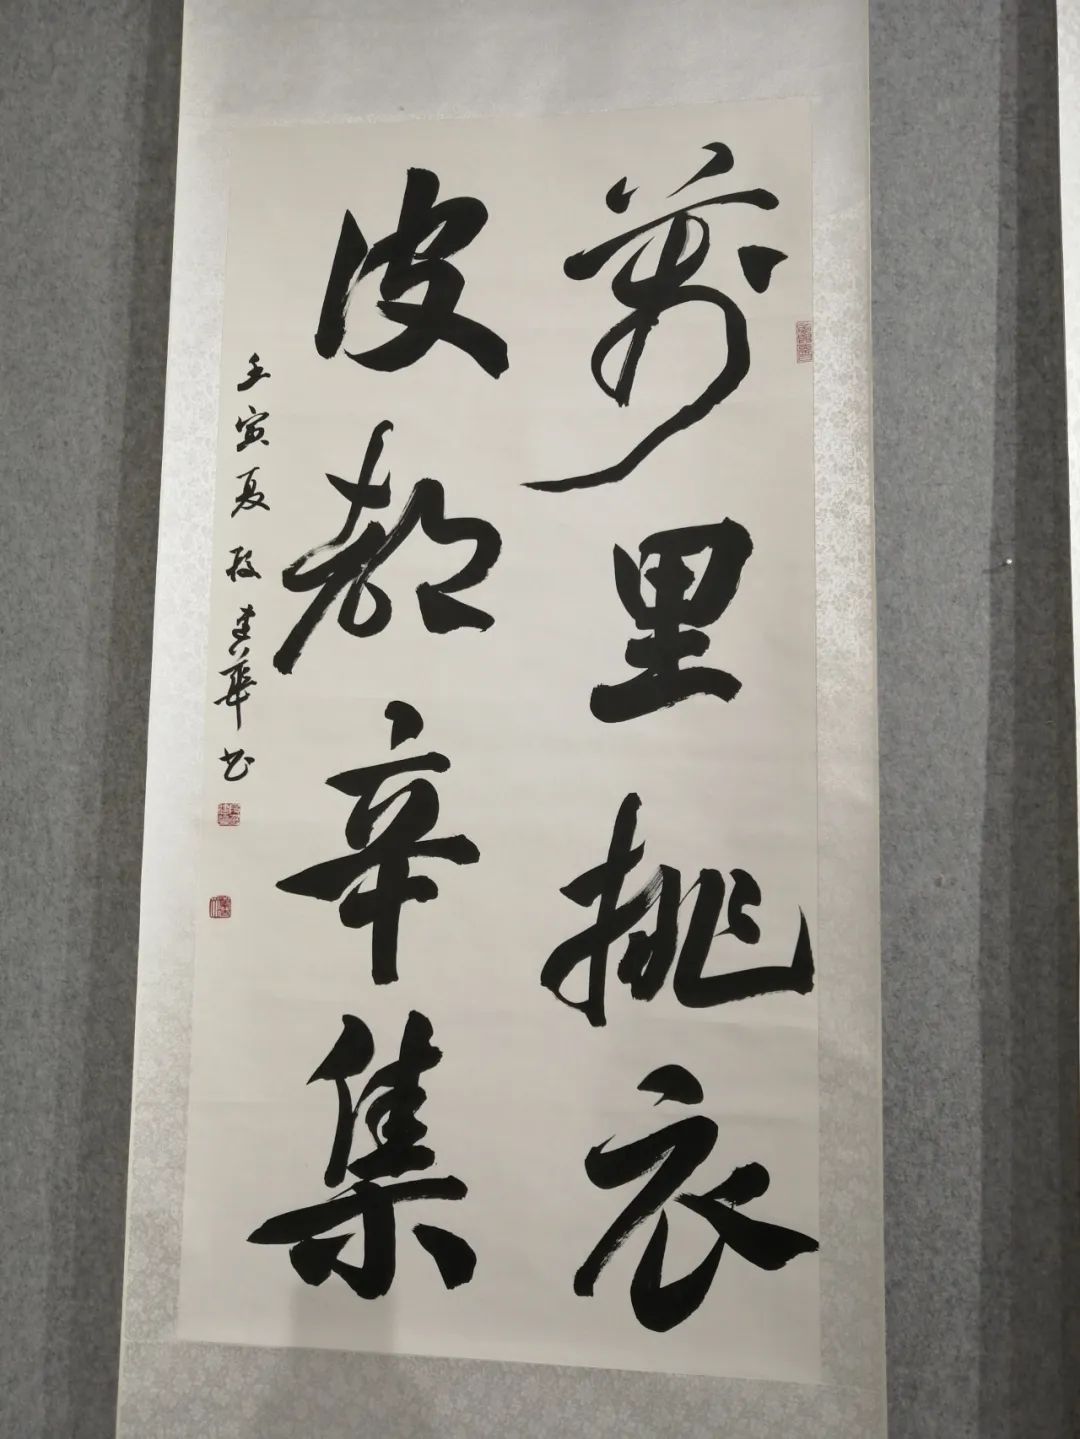 万里挑衣
皮都辛集
壬寅夏 段建华书